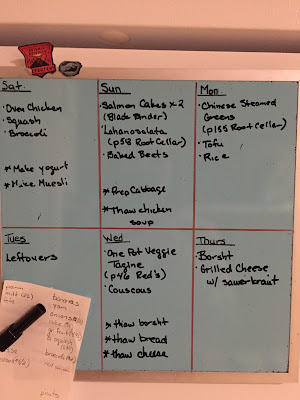 Sat
• Oven Chicken
• Squash
• Broccoli
* Make yogurt
* Mice Muesli
Sun
• Salmon Cakes x 2
(Black Binder)
• Lahanosalata
(p58 Root Cellar)
• Baked Beets
* Prep Cabbage
* Thaw chicken
soup
Mon
• Chinese Steamed
Greens
(p155 Root Cellar)
• Tofu
• Rice
Tues
Leftovers
Wed
• One Pot Veggie
Tagine
(p46 Red's)
• Couscous
* thaw borsht
* thaw bread
* thaw cheese
Thurs
• Borsht
• Grilled Cheese
w/ sauerkraut
bananas